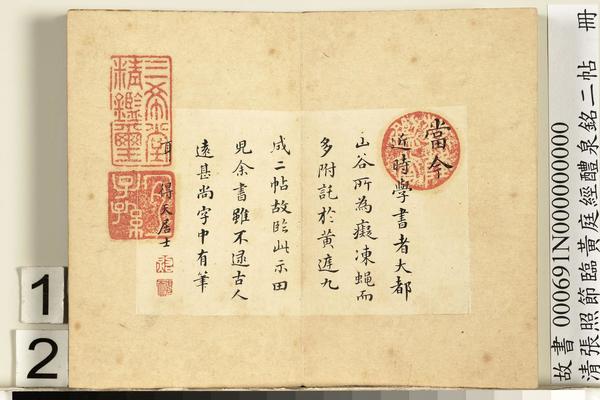 當今
近時學書者大都
山谷所為癡凍蠅而
多附託於黃庭九
成二帖故臨此示田
兒余書雖不逮古人
遠甚尚字中有筆
耳 得天居士
三希堂
精鑑璽
宜
子孫
故書 000691N000000000
清張照節臨黃庭經醴泉銘二帖 冊
1
2